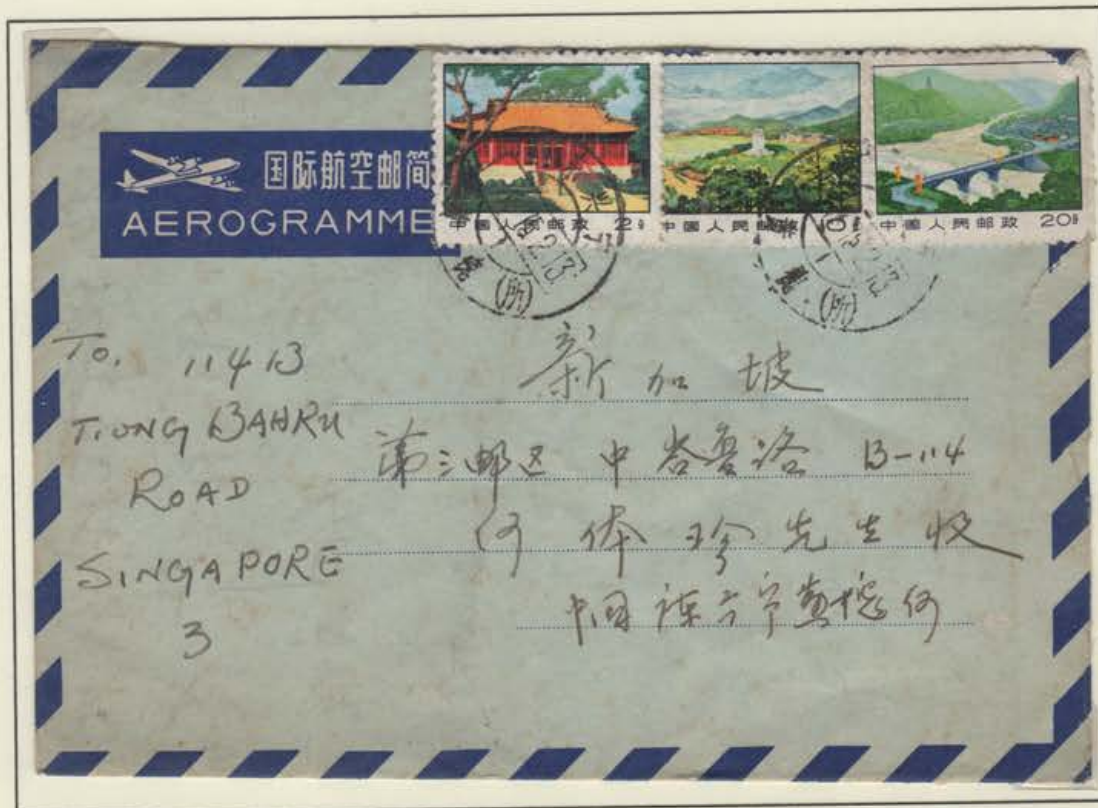 国际航空邮简
AEROGRAMME
中国人民邮政 2分
中国人民邮政 10分
中国人民邮政 20分
To. 114 B
TIONG BAHRU
ROAD
SINGAPORE
3
新加坡
第三邮区 中峇鲁路 B-114
何体珍先生收
中国
(所)
(所)